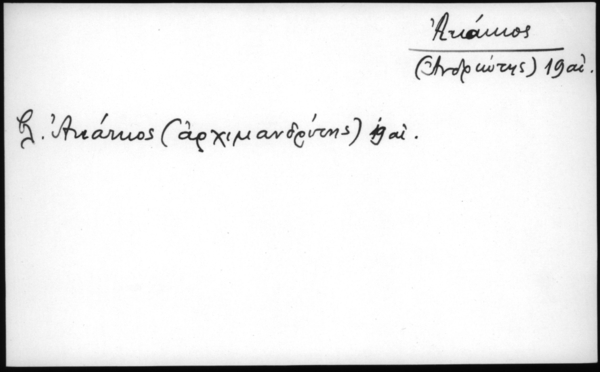 Ἀκάκιος
(Ἀνδριώτης) 19 αἰ.
Βλ. Ἀκάκιος (ἀρχιμανδρίτης) 19 αἰ.